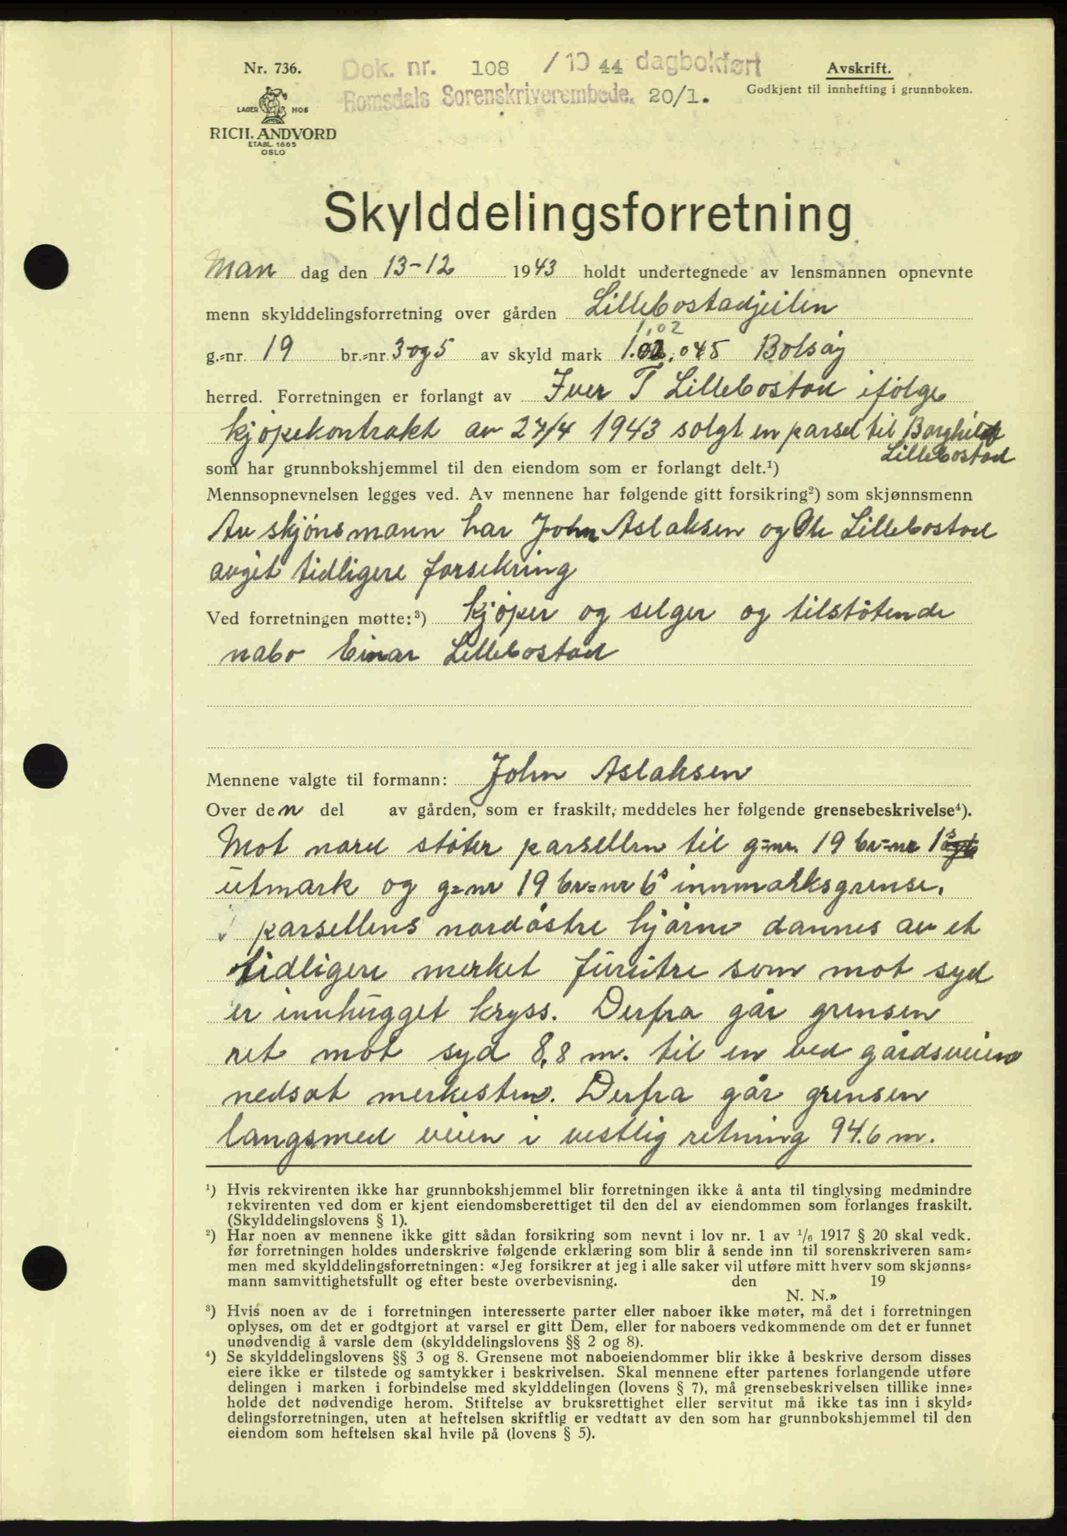 Nr. 736.
Dok. nr. 108 / 19 44 dagbokført
Romsdals Sorenskriverembede. 20/1.
Avskrift.
Godkjent til innhefting i grunnboken.
LAGER HOS
RICH. ANDVORD
ETABL. 1865
OSLO
Skylddelingsforretning
Man dag den 13-12 1943 holdt undertegnede av lensmannen opnevnte
menn skylddelingsforretning over gården Lillebostadjeilen
1,02
g.-nr. 19 br.-nr. 3 og 5 av skyld mark 1.02, 045 Bolsøy
herred. Forretningen er forlangt av Iver T Lillebostad ifølge
kjøpekontrakt av 27/4 1943 solgt en parsel til Borghild
Lillebostad
som har grunnbokshjemmel til den eiendom som er forlangt delt.¹)
Mennsopnevnelsen legges ved. Av mennene har følgende gitt forsikring²) som skjønnsmenn
Av skjønsmann har John Aslaksen og Ole Lillebostad
avgit tidligere forsekring
Ved forretningen møtte:³) kjøper og selger og tilstøtende
nabo Einar Lillebostad
Mennene valgte til formann: John Aslaksen
Over den del av gården, som er fraskilt, meddeles her følgende grensebeskrivelse⁴).
Mot nord støter parsellen til g=nr. 19 br=nr 1s
utmark og g=nr 19 br=nr 6s innmarksgrense.
I parsellens nordøstre hjørne dannes av et
tidligere merket furutre som mot syd
er innhugget kryss. Derfra går grensen
ret mot syd 8,8 m. til en ved gårdsveien
nedsat merkesten. Derfra går grensen
langsmed veien i vestlig retning 94.6 m.
¹) Hvis rekvirenten ikke har grunnbokshjemmel blir forretningen ikke å anta til tinglysing medmindre
rekvirenten ved dom er kjent eiendomsberettiget til den del av eiendommen som forlanges fraskilt.
(Skylddelingslovens § 1).
²) Har noen av mennene ikke gitt sådan forsikring som nevnt i lov nr. 1 av ¹/₆ 1917 § 20 skal vedk.
før forretningen holdes underskrive følgende erklæring som blir å sende inn til sorenskriveren sam-
men med skylddelingsforretningen: «Jeg forsikrer at jeg i alle saker vil utføre mitt hverv som skjønns-
mann samvittighetsfullt og efter beste overbevisning. den 19
N. N.»
³) Hvis noen av de i forretningen interesserte parter eller naboer ikke møter, må det i forretningen
oplyses, om det er godtgjort at varsel er gitt Dem, eller for naboers vedkommende om det er funnet
unødvendig å varsle dem (skylddelingslovens §§ 2 og 8).
⁴) Se skylddelingslovens §§ 3 og 8. Grensene mot naboeiendommer blir ikke å beskrive dersom disses
eiere ikke er tilstede og samtykker i beskrivelsen. Skal mennene efter partenes forlangende utføre
delingen i marken i forbindelse med skylddelingen (lovens § 7), må grensebeskrivelsen tillike inne-
holde det nødvendige herom. Stiftelse av bruksrettighet eller servitut må ikke tas inn i skyld-
delingsforretningen, uten at heftelsen skriftlig er vedtatt av den som har grunnbokshjemmel til den
eiendom som heftelsen skal hvile på (lovens § 5).